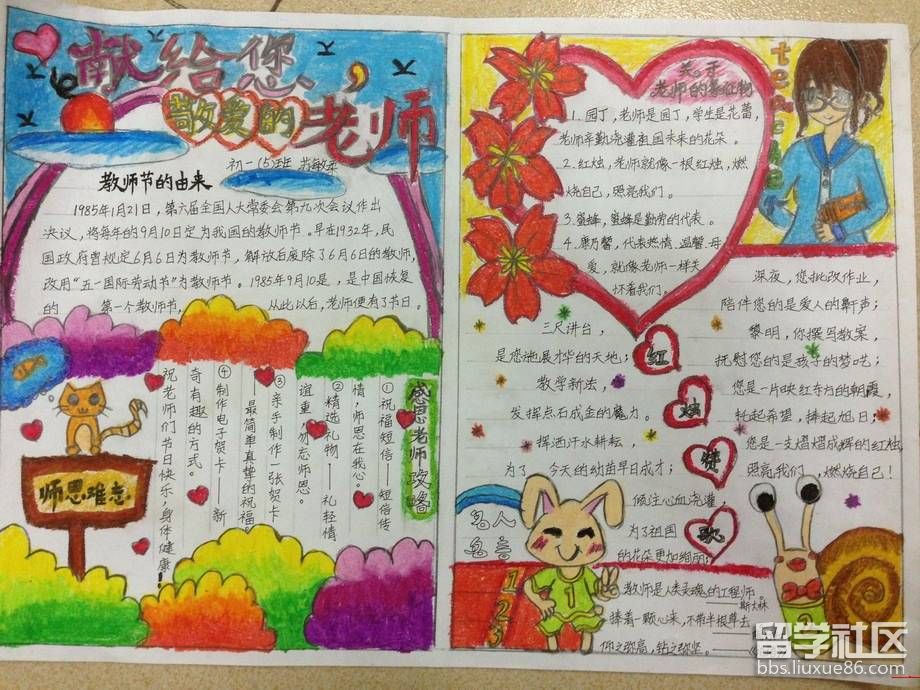 献给您、
敬爱的老师
初一(5)班
教师节的由来
1985年1月21日，第六届全国人大常委会第九次会议作出
决议，将每年的9月10日定为我国的教师节。早在1932年，民
国政府曾规定6月6日为教师节，解放后废除了6月6日的教师，
改用“五一国际劳动节”为教师节。1985年9月10是，是中国恢复
的 第一个教师节， 从此以后，老师便有了节日。
感恩老师攻略
①祝福短信——短信传
情，师恩在我心。
②精选礼物—— 礼轻情
谊重，勿忘师恩。
③亲手制作一张贺卡
——最简单真挚的祝福
④制作电子贺卡—— 新
奇有趣的方式。
祝老师们节日快乐，身体健康！
师恩难忘
关于
老师的象征物
1.园丁，老师是园丁，学生是花蕾，
老师辛勤浇灌祖国未来的花朵。
2.红烛，老师就像一根红烛，燃
烧自己，照亮我们。
3.蜜蜂，蜜蜂是勤劳的代表。
4.康乃馨，代表热情，温馨 母
爱，就像老师一样关
怀着我们。
红
烛
赞
歌
三尺讲台，
是您施展才华的天地；
教学新法，
发挥点石成金的魔力。
挥洒汗水耕耘，
为了 今天的幼苗早日成才；
倾注心血浇灌，
为了祖国
的花朵更加绚丽；
深夜，您批改作业，
陪伴您的是爱人的鼾声；
黎明，你撰写教案，
抚慰您的是孩子的梦呓；
您是一片映红东方的朝霞，
牝起希望，捧起旭日；
您是一支熠熠成辉的红烛，
照亮我们，燃烧自己！
名人
名言
1
2
3
1
教师是人类灵魂的工程师。
——斯大林
捧着一颗心来，不带半根草去
仰之弥高，钻之弥坚。
留学社区
bbs.liuxue86.com